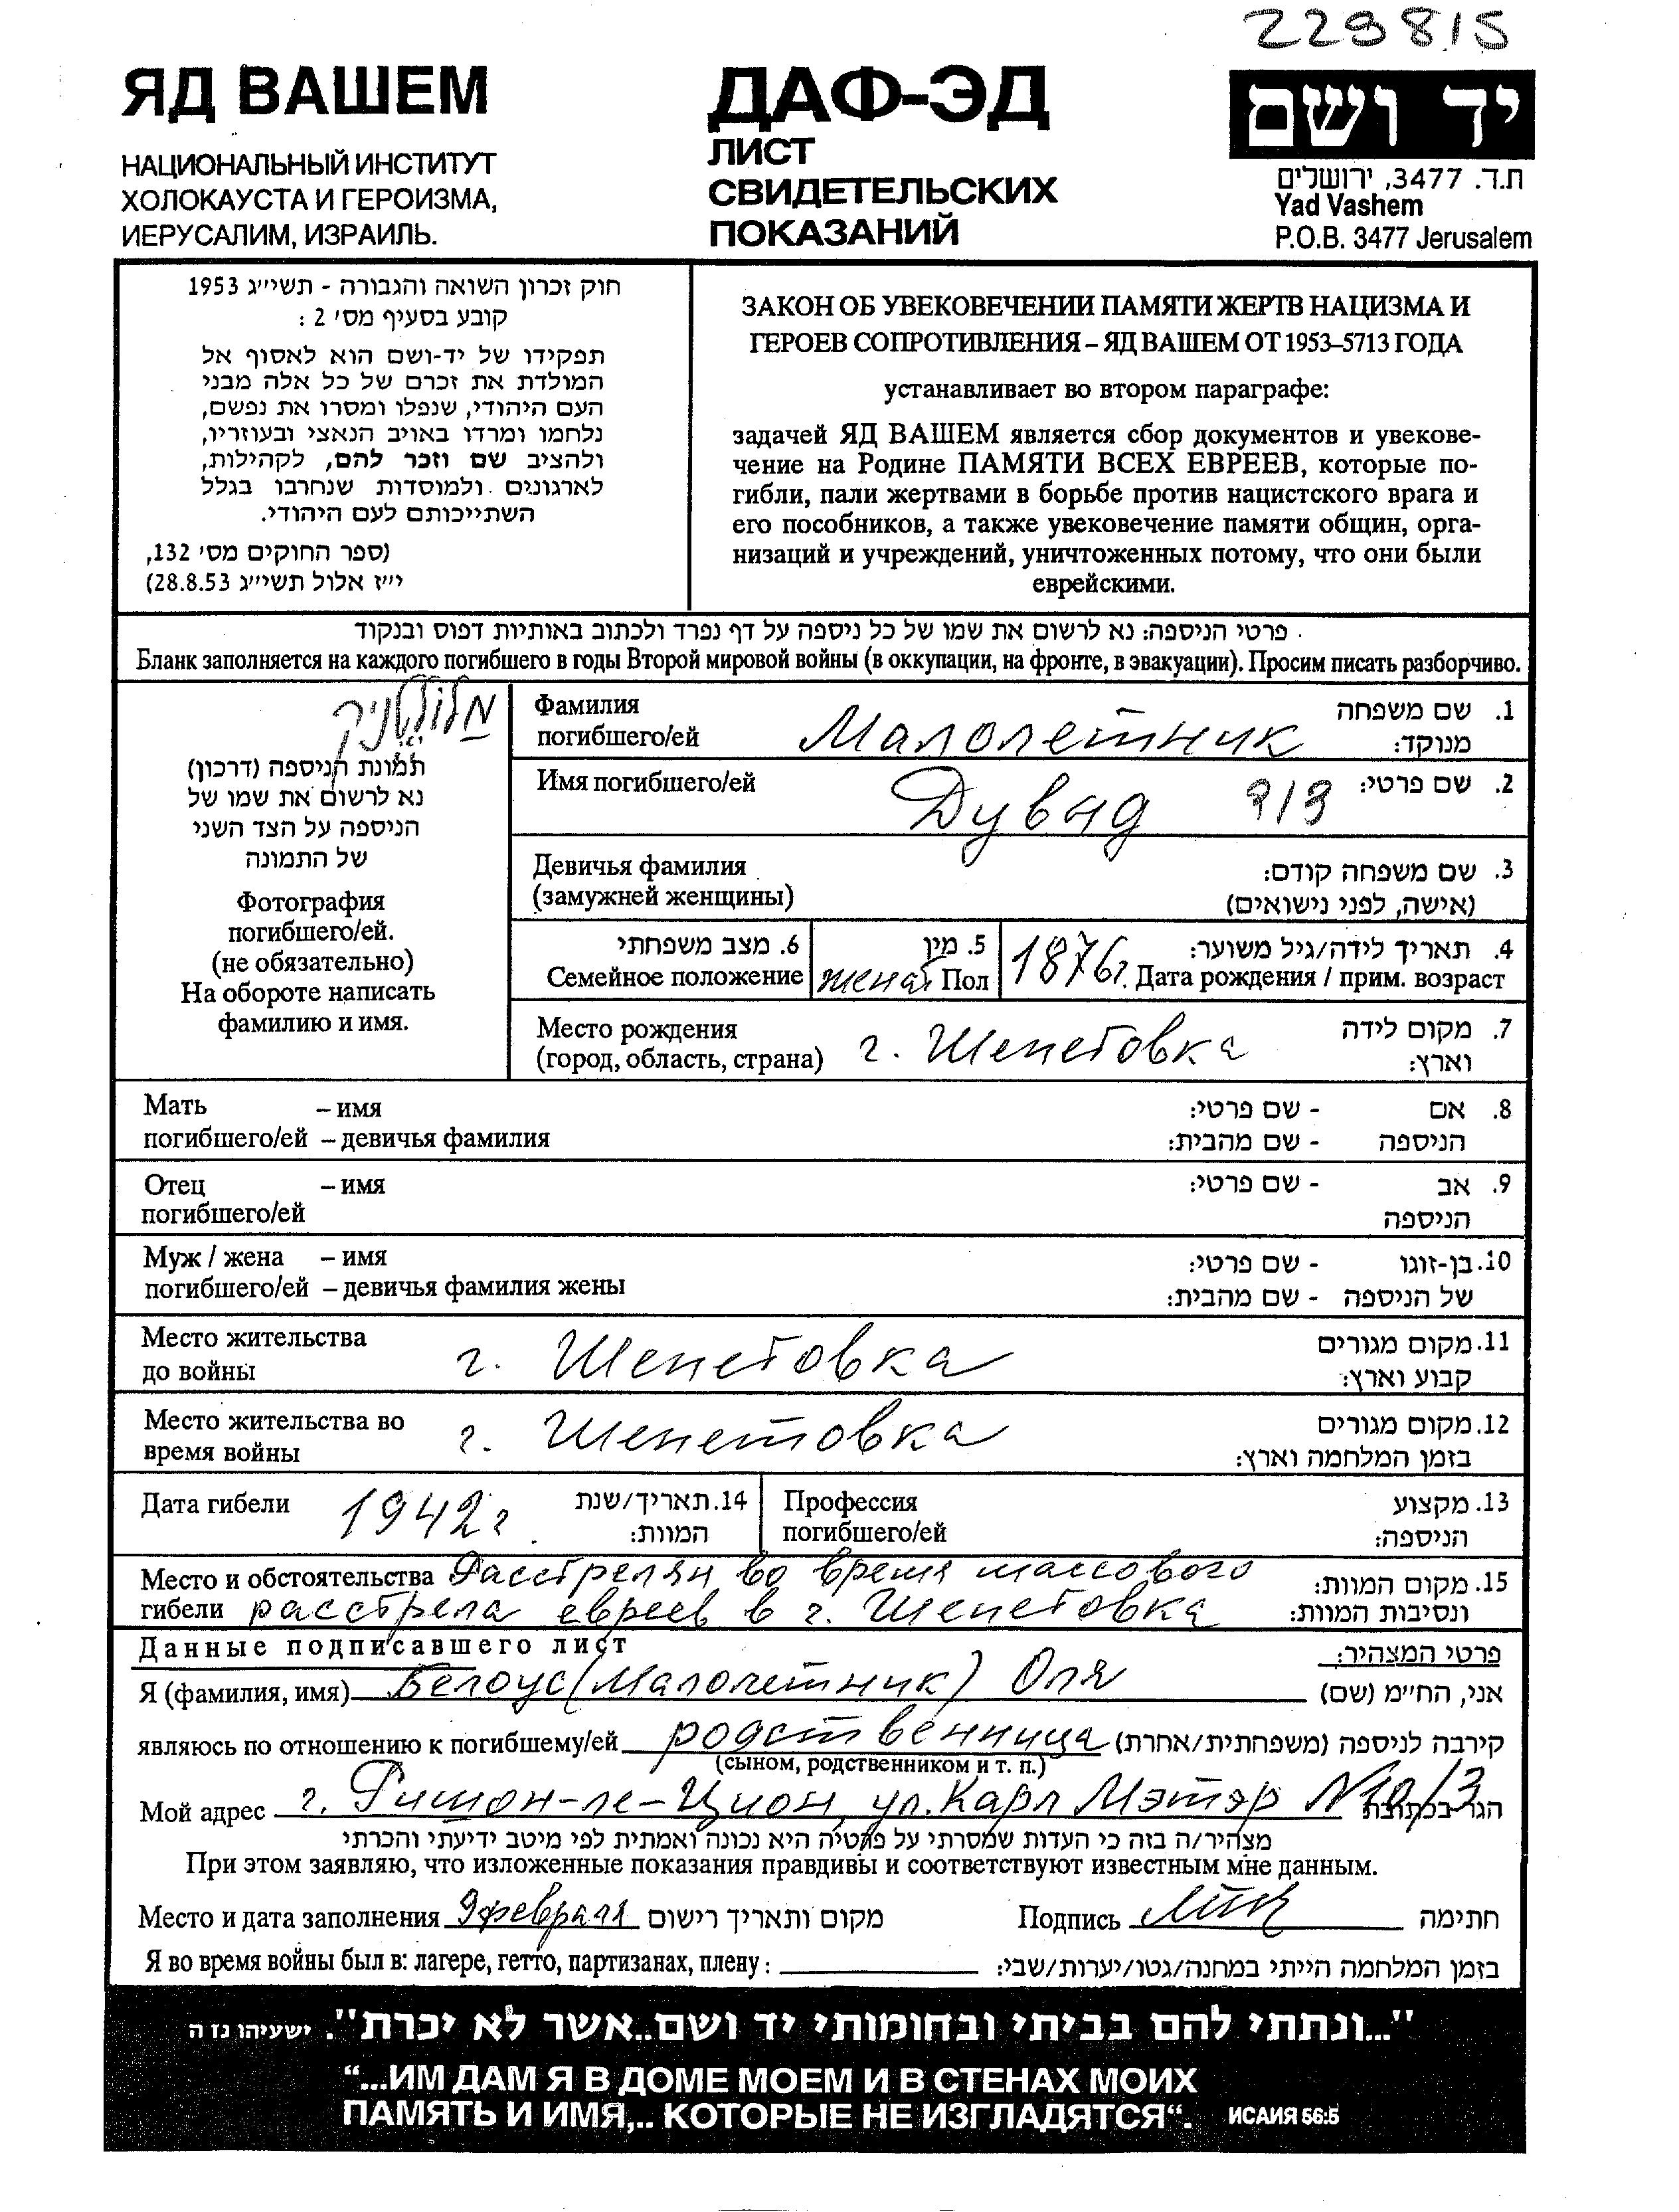 229815
ЯД ВАШЕМ
НАЦИОНАЛЬНЫЙ ИНСТИТУТ
ХОЛОКАУСТА И ГЕРОИЗМА,
ИЕРУСАЛИМ, ИЗРАИЛЬ.
ДАФ-ЭД
ЛИСТ
СВИДЕТЕЛЬСКИХ
ПОКАЗАНИЙ
יד ושם
ת.ד. 3477, ירושלים
Yad Vashem
P.O.B. 3477 Jerusalem
חוק זכרון השואה והגבורה - תשי״ג 1953
קובע בסעיף מס׳ 2 :
תפקידו של יד-ושם הוא לאסוף אל
המולדת את זכרם של כל אלה מבני
העם היהודי, שנפלו ומסרו את נפשם,
נלחמו ומרדו באויב הנאצי ובעוזריו,
ולהציב שם וזכר להם, לקהילות,
לארגונים ולמוסדות שנחרבו בגלל
השתייכותם לעם היהודי.
(ספר החוקים מס׳ 132,
י״ז אלול תשי״ג 28.8.53)
ЗАКОН ОБ УВЕКОВЕЧЕНИИ ПАМЯТИ ЖЕРТВ НАЦИЗМА И
ГЕРОЕВ СОПРОТИВЛЕНИЯ – ЯД ВАШЕМ ОТ 1953–5713 ГОДА
устанавливает во втором параграфе:
задачей ЯД ВАШЕМ является сбор документов и увекове-
чение на Родине ПАМЯТИ ВСЕХ ЕВРЕЕВ, которые по-
гибли, пали жертвами в борьбе против нацистского врага и
его пособников, а также увековечение памяти общин, орга-
низаций и учреждений, уничтоженных потому, что они были
еврейскими.
פרטי הניספה: נא לרשום את שמו של כל ניספה על דף נפרד ולכתוב באותיות דפוס ובנקוד
Бланк заполняется на каждого погибшего в годы Второй мировой войны (в оккупации, на фронте, в эвакуации). Просим писать разборчиво.
מלולטניק
תמונת הניספה (דרכון)
נא לרשום את שמו של
הניספה על הצד השני
של התמונה
Фотография
погибшего/ей.
(не обязательно)
На обороте написать
фамилию и имя.
Фамилия 1. שם משפחה
погибшего/ей Малолетник מנוקד:
Имя погибшего/ей Дувид דוד 2. שם פרטי:
Девичья фамилия 3. שם משפחה קודם:
(замужней женщины) (אישה, לפני נישואים)
6. מצב משפחתי 5. מין 4. תאריך לידה/גיל משוער:
Семейное положение женат Пол 1876г. Дата рождения / прим. возраст
Место рождения 7. מקום לידה
(город, область, страна) г. Шепетовка וארץ:
Мать – имя 8. אם - שם פרטי:
погибшего/ей – девичья фамилия הניספה - שם מהבית:
Отец – имя 9. אב - שם פרטי:
погибшего/ей הניספה
Муж / жена – имя 10. בן-זוגו - שם פרטי:
погибшего/ей – девичья фамилия жены של הניספה - שם מהבית:
Место жительства 11. מקום מגורים
до войны г. Шепетовка קבוע וארץ:
Место жительства во 12. מקום מגורים
время войны г. Шепетовка בזמן המלחמה וארץ:
Дата гибели 1942г 14. תאריך/שנת המוות:
Профессия 13. מקצוע
погибшего/ей הניספה:
Место и обстоятельства Расстрелян во время массового 15. מקום המוות:
гибели расстрела евреев в г. Шепетовка ונסיבות המוות:
Данные подписавшего лист פרטי המצהיר:
Я (фамилия, имя) Белоус (Малолетник) Оля אני, הח״מ (שם)
являюсь по отношению к погибшему/ей родственница קירבה לניספה (משפחתית/אחרת)
(сыном, родственником и т. п.)
Мой адрес г. Ришон-ле-Цион, ул. Карл Мэтэр №10/3 הגר בכתובת
מצהיר/ה בזה כי העדות שמסרתי על פרטיה היא נכונה ואמתית לפי מיטב ידיעתי והכרתי
При этом заявляю, что изложенные показания правдивы и соответствуют известным мне данным.
Место и дата заполнения 9 февраля מקום ותאריך רישום Подпись חתימה
Я во время войны был в: лагере, гетто, партизанах, плену: בזמן המלחמה הייתי במחנה/גטו/יערות/שבי:
"...ונתתי להם בביתי ובחומותי יד ושם..אשר לא יכרת". ישעיהו נו ה
“...ИМ ДАМ Я В ДОМЕ МОЕМ И В СТЕНАХ МОИХ
ПАМЯТЬ И ИМЯ,.. КОТОРЫЕ НЕ ИЗГЛАДЯТСЯ“. ИСАИЯ 56:5